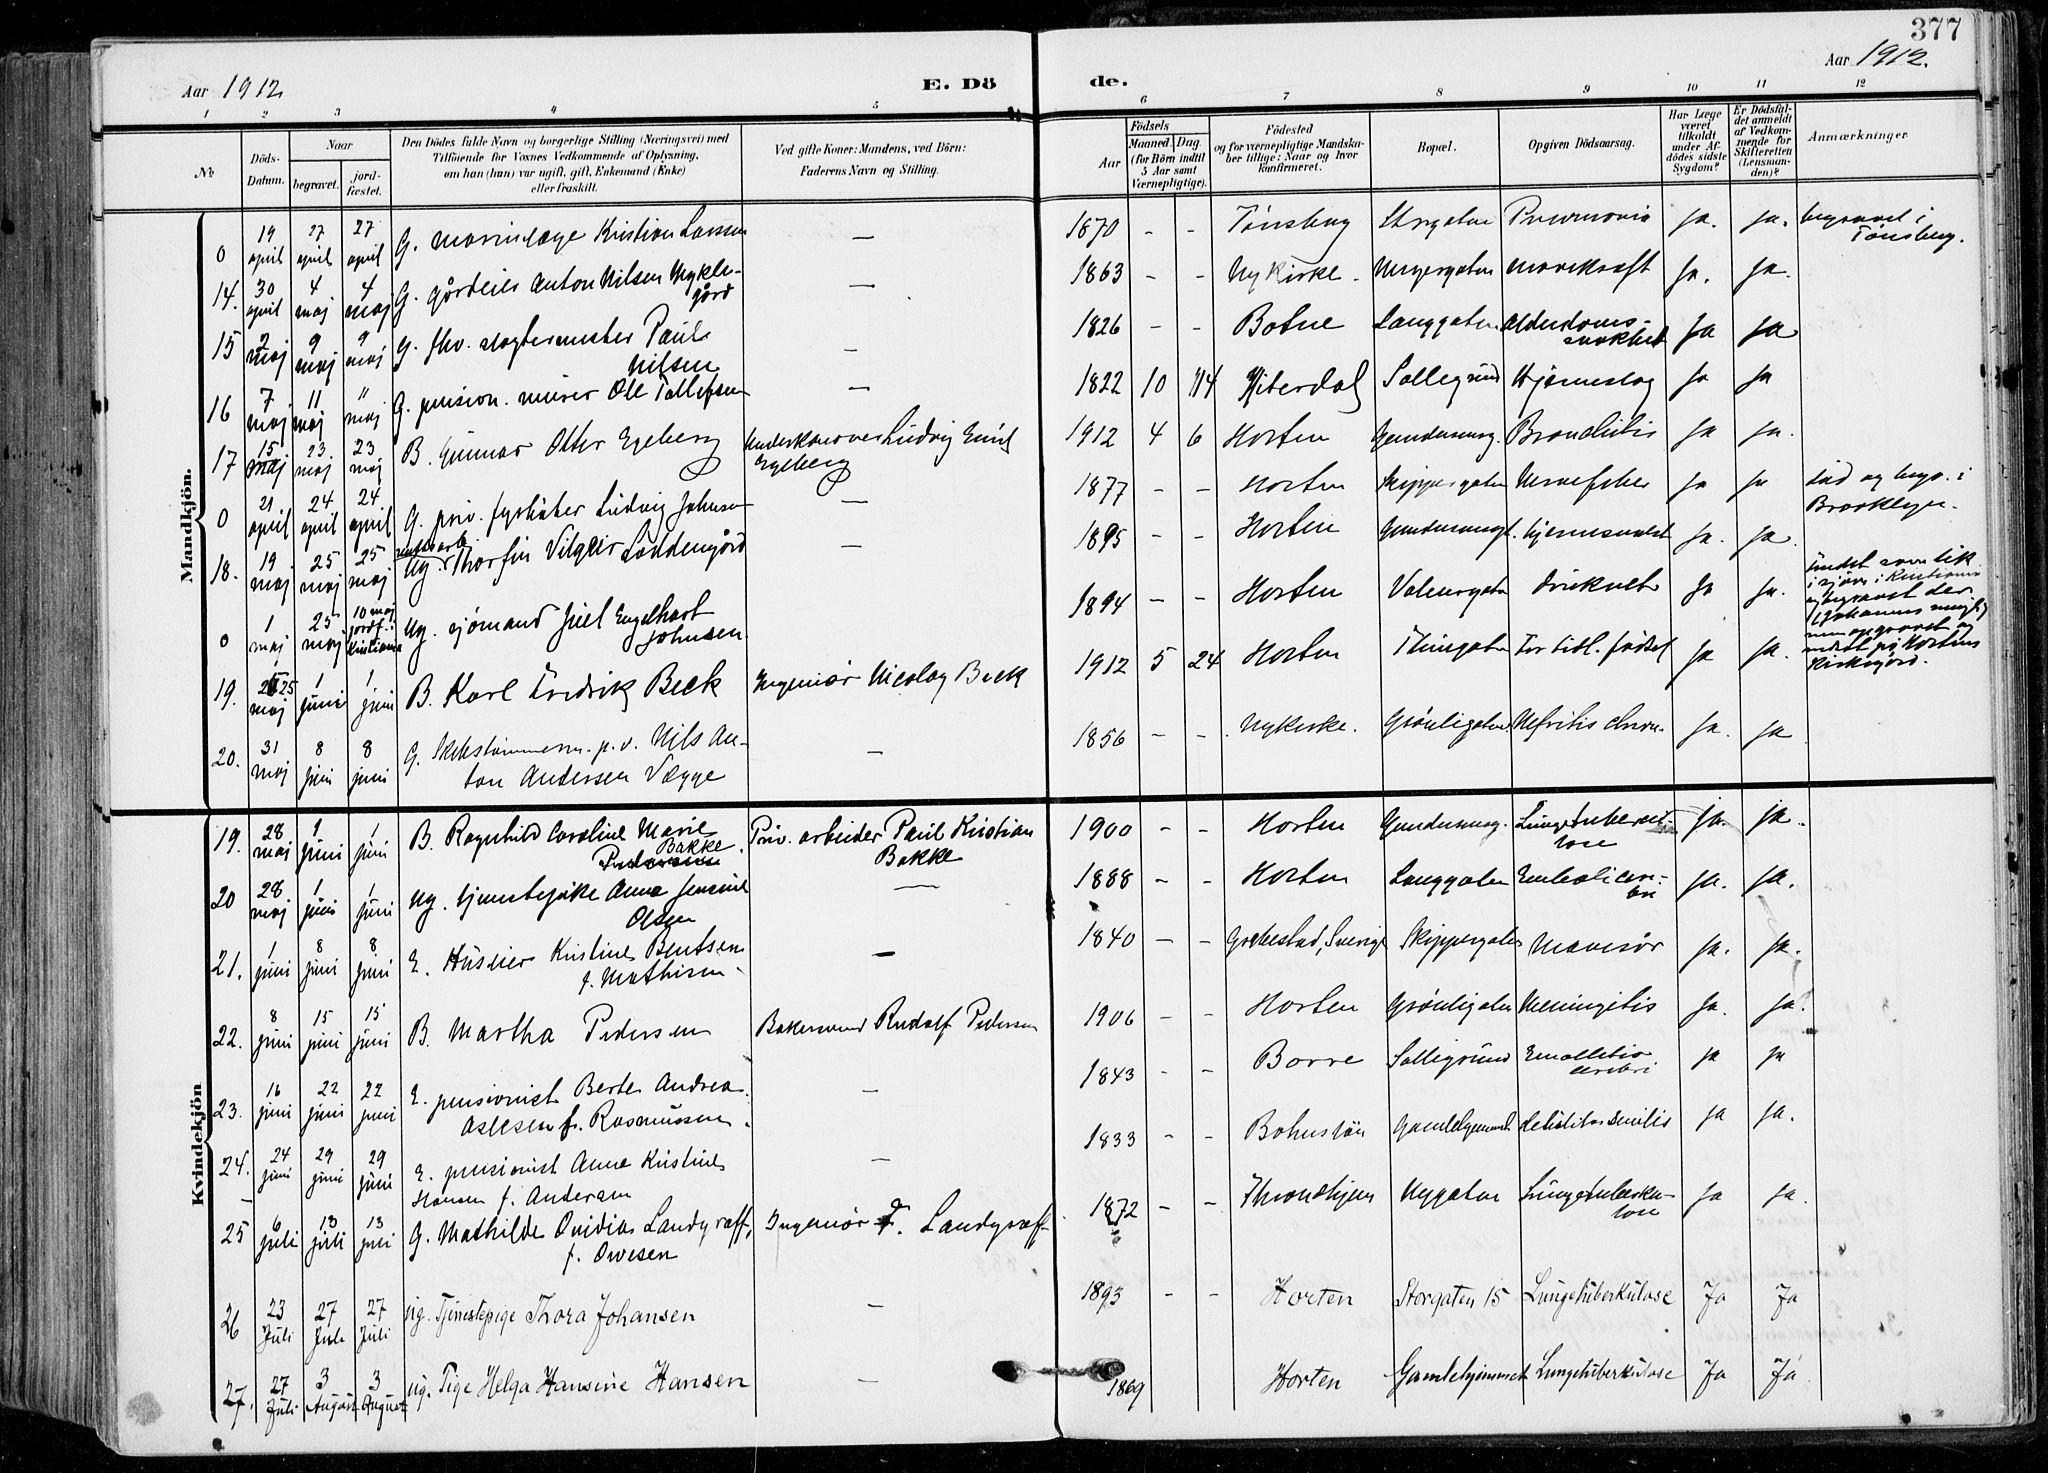 377
Aar 1912.
E. Dö
de.
Aar 1912.
1 2 3 4 5 6 7 8 9 10 11 12
No
Döds-
Datum.
Naar
begravet.
jord-
fæstet.
Den Dödes fulde Navn og borgerlige Stilling (Næringsvei) med
Tilföiende for Voxnes Vedkommende af Oplysning,
om han (hun) var ugift, gift, Enkemand (Enke)
eller fraskilt.
Ved gifte Koner: Mandens, ved Börn:
Faderens Navn og Stilling.
Födsels
Aar
Maaned. Dag.
(for Börn indtil
5 Aar samt
Værnepligtige).
Födested
og for værnepligtige Mandska-
ber tillige: Naar og hvor
konfirmeret.
Bopæl.
Opgiven Dödsaarsag.
Har Læge
været
tilkaldt
under Af-
dödes sidste
Sygdom?
Er Dödsfal-
det anmeldt
af Vedkom-
mende for
Skifteretten
(Lensman-
den)?
Anmærkninger.
Mandkjön.
0 19 april 27 april 27 april G. Marinlæge Kristian Larsen — 1870 - - Tönsberg Storgaten Pneumonia Ja. Ja. begravet i
Tönsberg.
14. 30 april 4 maj 4 maj G. gårdeier Anton Nilsen Nykle-
gård — 1863 - - Nykirke. Mavekræft Ja. Ja.
15 2 maj 9 maj 9 maj G. fhv. Paul
Nilsen — 1826 - - Botne Langgaten Alderdoms-
svakhed Ja Ja
16 7 maj 11 maj 11 maj G. pension. murer Ole Tollefsen — 1822 10 14 Hiterdal Sollegrund Hjerneslag Ja Ja
17 15 maj 23. maj 23 maj B. Gunnar Otter Egeberg Underkanoner Ludvig Emil
Egeberg 1912 4 6 Horten Bronchitis Ja Ja.
0 21 april 24 april 24 april G. priv. fyrbøter Ludvig Johnsen — 1877 - - Horten Skippergaten Nervefeber Ja Ja död og begr. i
Brooklyn.
18. 19 maj 25 maj 25 maj Ug. Thorfin Vilgeir Loddengård — 1895 - - Horten Ja. Ja.
0 1 maj 25 maj 10 maj
jordf. i
Kristiania Ug. sjömand Juel Engelhart
Johnsen — 1894 - - Horten Druknet Ja Ja. fundet som lik
i sjöen i Kristiania
og begravet der
opgravet og
på Hortens
kirkegård.
19. 25 maj 1 juni 1 juni B. Karl Fredrik Beck Ingeniør Nicolay Beck 1912 5 24 Horten For tidl. fødsel Ja Ja.
20. 31 maj 8 juni 8 juni G. Skibstømmerm. p.v. Nils An-
ton Andersen Vægge — 1856 - - Nykirke. Grönligaten Nefritis chron. Ja. Ja
Kvindekjön
19. 28 maj 1 juni 1 juni B. Ragnhild Caroline Marie
Bakke Priv. arbeider Paul Kristian
Bakke 1900 - - Horten Lungetuberku-
lose Ja. Ja.
20 28 maj 1 juni 1 juni Ug. tjenestepike Anna Jensine
Olsen — 1888 - - Horten Langgaten Ja. Ja.
21. 1 juni 8 juni 8 juni E. Huseier Kristine Bentsen
f. Mathisen — 1840 - - Grebestad, Sverige Skippergaten Mavesår Ja. Ja.
22. 8 juni 15 juni 15 juni B. Martha Pedersen Bakersvend Rudolf Pedersen 1906 - - Horten Grönligaten Meningitis Ja. Ja.
23. 16 juni 22 juni 22 juni E. pensionist Berte Andrea
Aslesen f. Rasmussen. — 1843 - - Borre Sollegrund Emollitio
cerebri Ja Ja
24. 24 juni 29 juni 29 juni E. pensionist Anne Kristine
Hansen f. Andersen — 1833 - - Bohuslän Gamlehjemmet debilitas senilis Ja Ja.
25 6 juli 13 juli 13 juli G. Mathilde Ovidia Landgraff,
f. Owesen Ingeniør F. Landgraff 1872 - - Throndhjem Nygaten Lungetuberku-
lose Ja Ja.
26 23 Juli 27 Juli 27 Juli ug. Tjenestepige Thora Johansen — 1893 - - Horten Storgaten 15 Lungetuberkulose Ja Ja
27. 27 Juli 3 August 3 August ug. Pige Helga Hansine Hansen — 1869 Horten Gamlehjemmet Lungetuberkulose Ja Ja